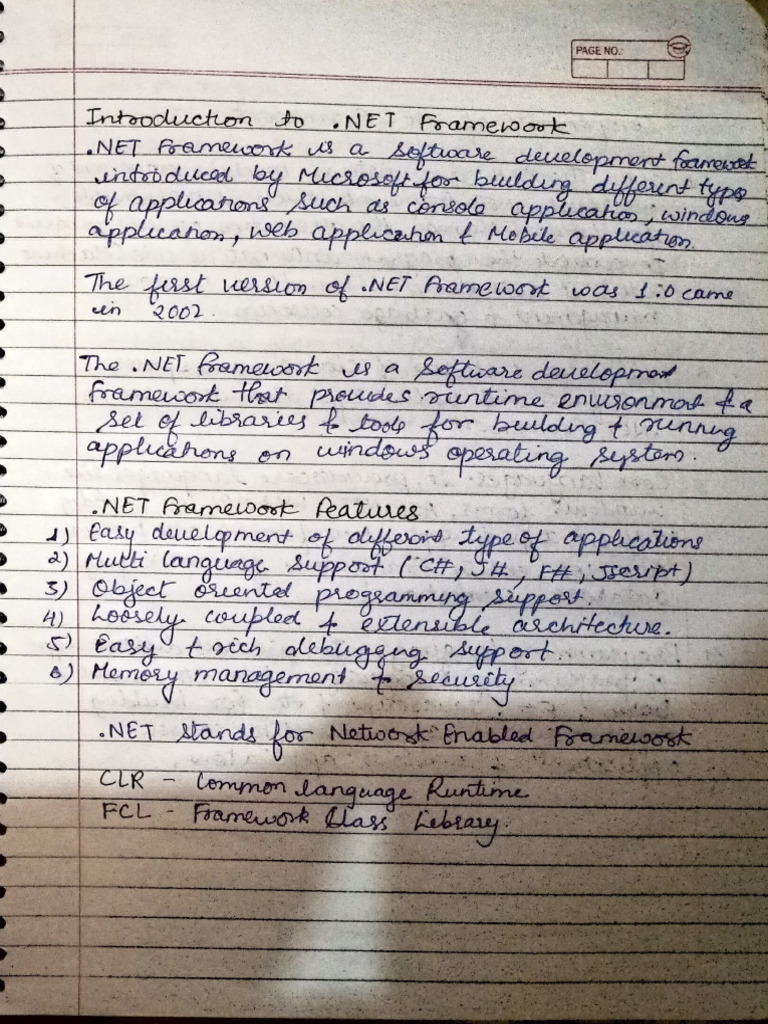 PAGE NO.:
Introduction to .NET Framework
.NET Framework is a software development framewot
introduced by Microsoft for building different types
of applications such as console application, windows
application, web application & Mobile application.
The first version of .NET Framework was 1.0 came
in 2002.
The .NET framework is a software development
framework that provides runtime environmat & a
set of libraries & tools for building & running
applications on windows operating system.
.NET Framework Features
1) Easy development of different type of applications
2) Multi language support (C#, J#, F#, Jscript)
3) Object oriented programming support.
4) Loosely coupled & extensible architecture.
5) Easy & rich debugging support.
6) Memory management & security.
.NET stands for Network Enabled Framework
CLR - Common language Runtime
FCL - Framework Class Library.